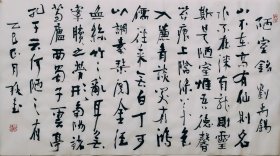 陋室銘 劉禹錫
山不在高有仙則名
水不在深有龍則靈
斯是陋室惟吾德馨
苔痕上階綠草色
入簾青談笑有鴻
儒往來無白丁可
以調素琴閱金經
無絲竹之亂耳無
案牘之勞形南陽諸
葛廬西蜀子雲亭
孔子云何陋之有